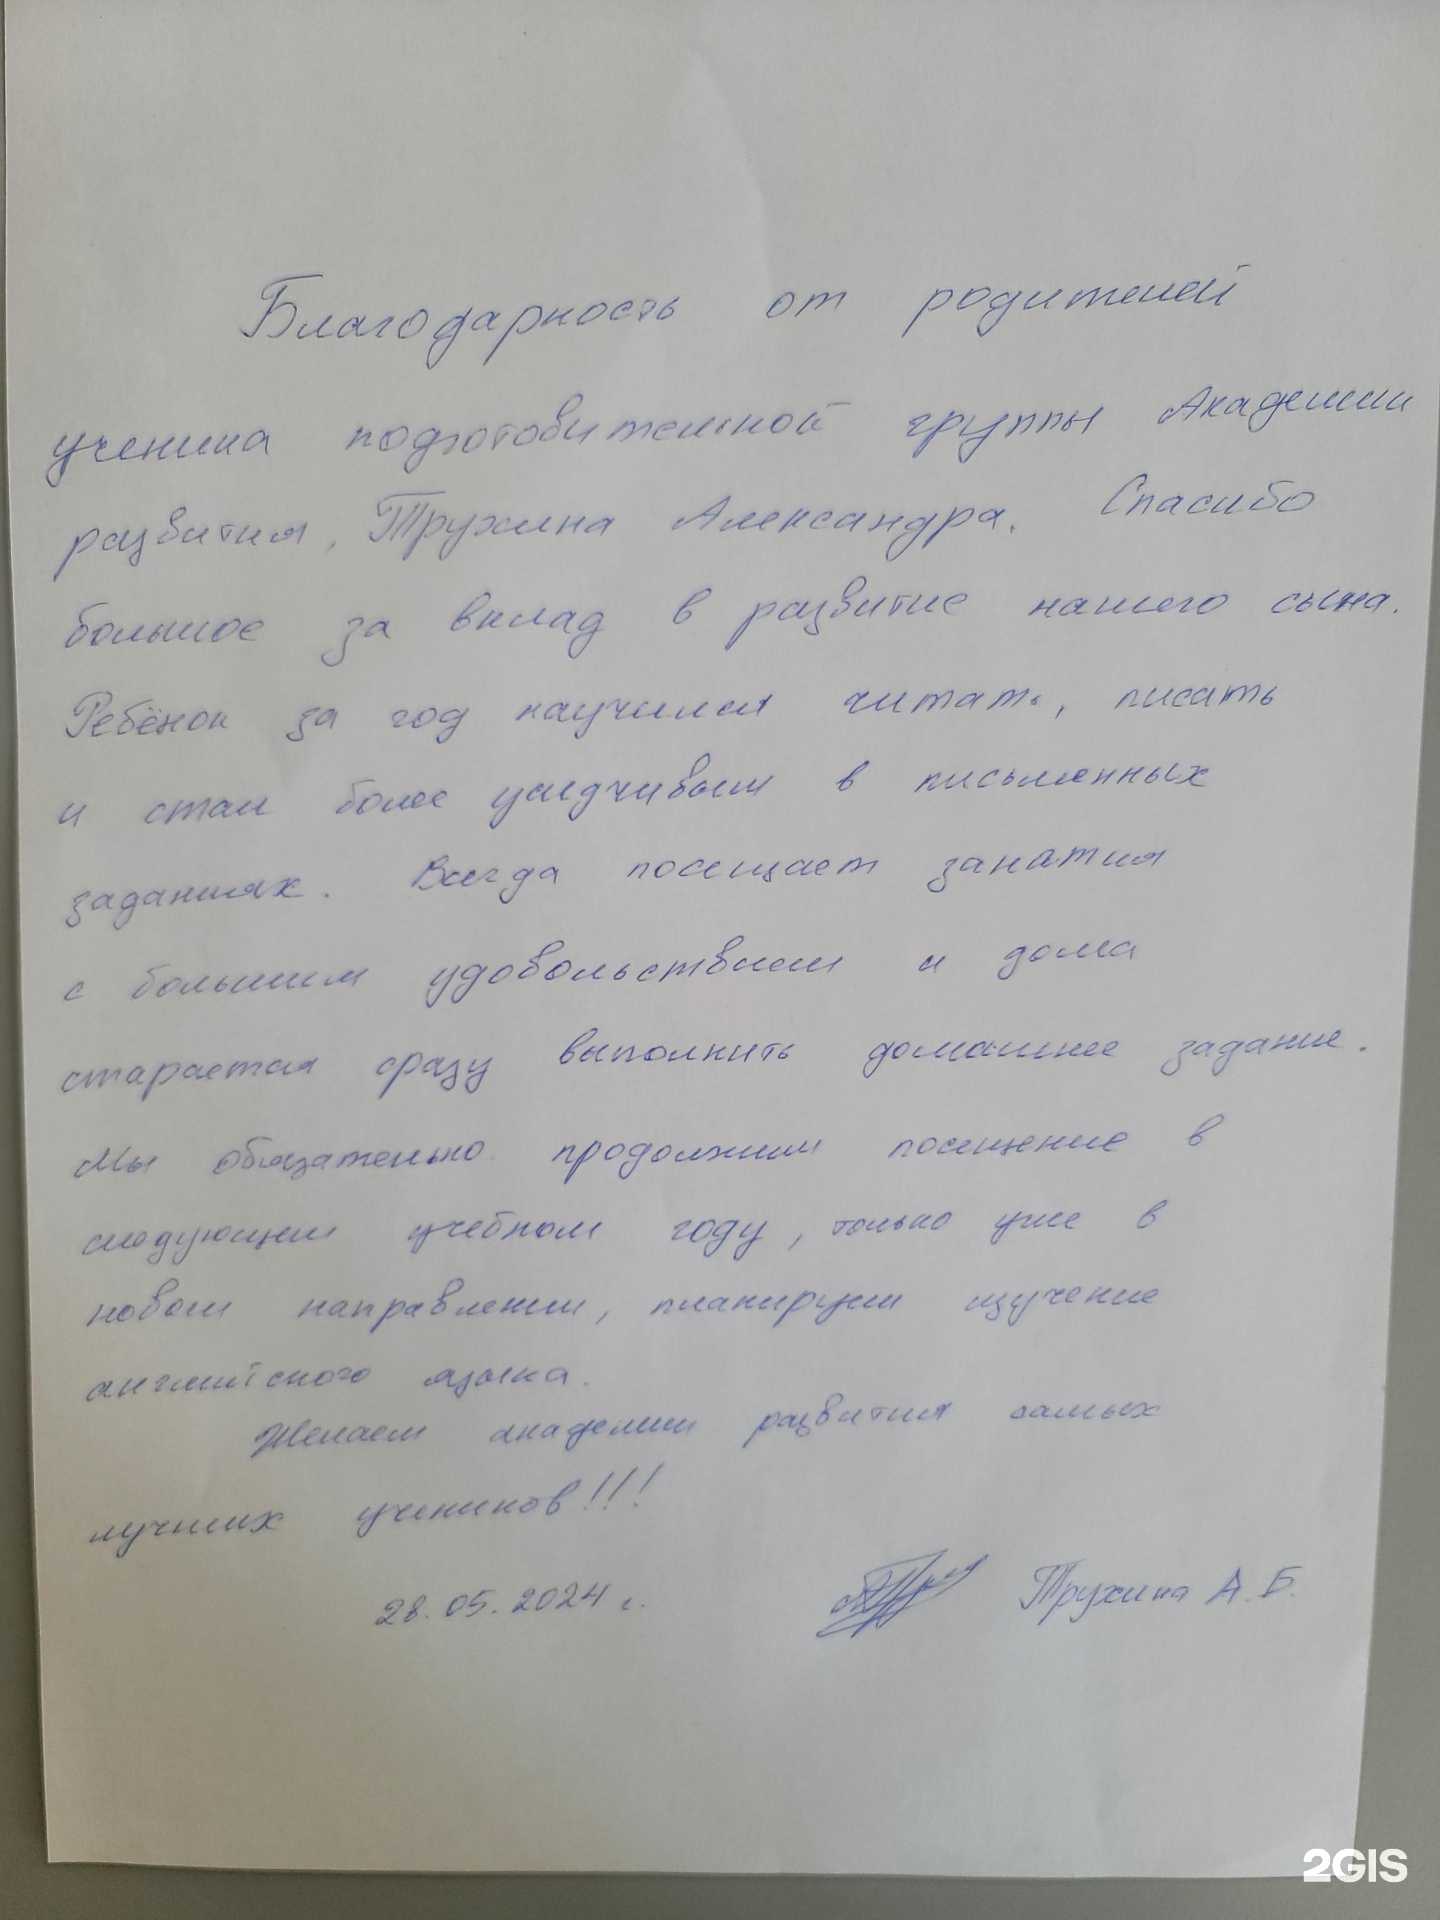 Благодарность от родителей
ученика подготовительной группы Академии
развития, Трухина Александра. Спасибо
большое за вклад в развитие нашего сына.
Ребёнок за год научился читать, писать
и стал более усидчивым в письменных
заданиях. Всегда посещает занятия
с большим удовольствием и дома
старается сразу выполнить домашнее задание.
Мы обязательно продолжим посещение в
следующем учебном году, только уже в
новом направлении, планируем изучение
английского языка.
Желаем академии развития самых
лучших учеников!!!
28.05.2024 г. Трухина А.Б.
2GIS